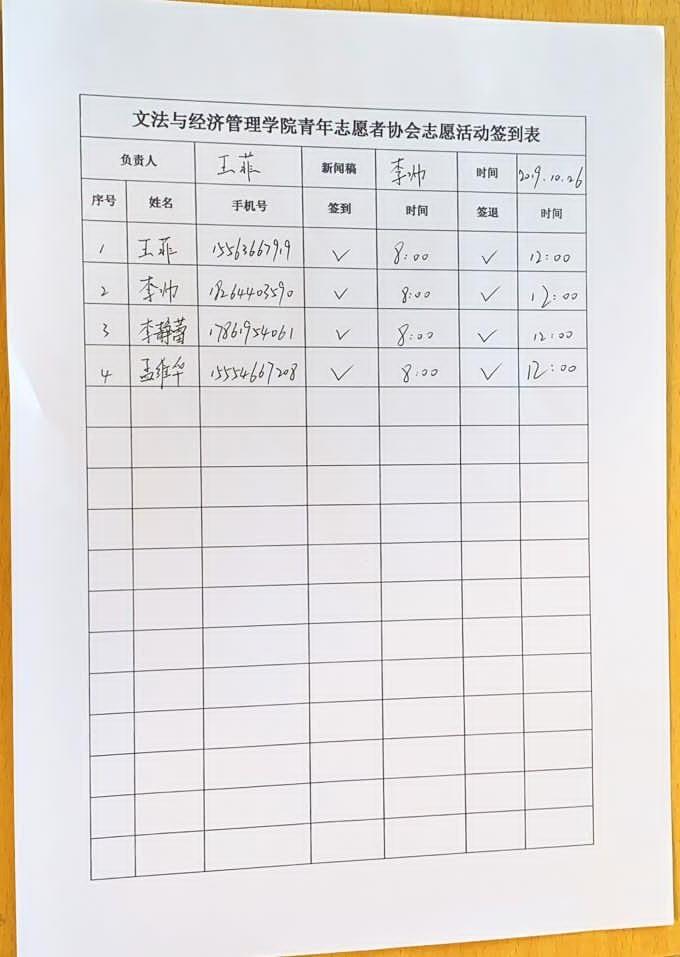 文法与经济管理学院青年志愿者协会志愿活动签到表
负责人 王菲 新闻稿 李帅 时间 2019.10.26
序号 姓名 手机号 签到 时间 签退 时间
1 王菲 15563667919 ✓ 8:00 ✓ 12:00
2 李帅 18264403590 ✓ 8:00 ✓ 12:00
3 李静蕾 17861954061 ✓ 8:00 ✓ 12:00
4 孟维华 15554667208 ✓ 8:00 ✓ 12:00